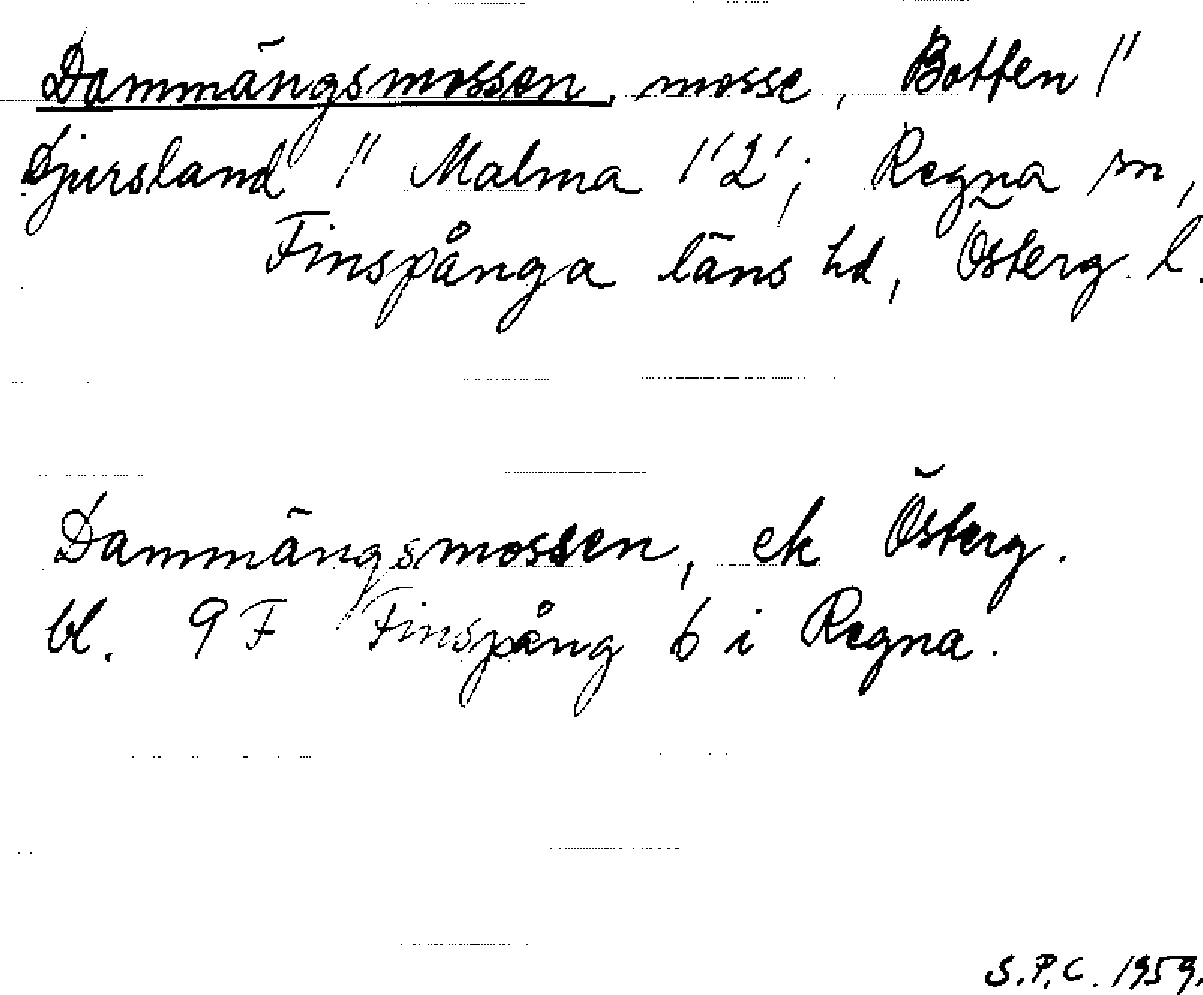 Dammängsmossen, mosse, Botten 1'
Djursland 1' Malma 1'2'; Regna sn,
Finspånga läns hd, Österg. l.
Dammängsmossen, ek Österg.
bl. 9F Finspång 6 i Regna.
S.P.C. 1959.